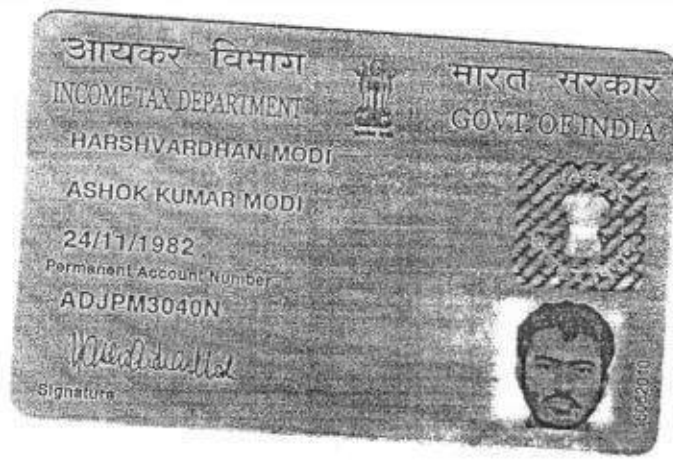 आयकर विभाग
INCOME TAX DEPARTMENT
भारत सरकार
GOVT. OF INDIA
HARSHVARDHAN MODI
ASHOK KUMAR MODI
24/11/1982
Permanent Account Number
ADJPM3040N
Signature